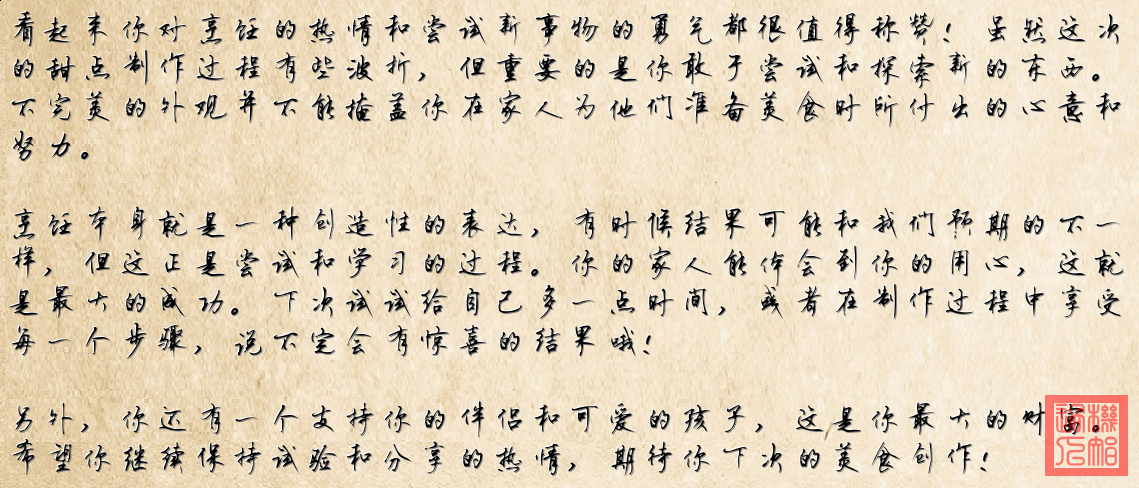 看起来你对烹饪的热情和尝试新事物的勇气都很值得称赞！虽然这次
的甜点制作过程有些波折，但重要的是你敢于尝试和探索新的东西。
不完美的外观并不能掩盖你在家人为他们准备美食时所付出的心意和
努力。
烹饪本身就是一种创造性的表达，有时候结果可能和我们预期的不一
样，但这正是尝试和学习的过程。你的家人能体会到你的用心，这就
是最大的成功。下次试试给自己多一点时间，或者在制作过程中享受
每一个步骤，说不定会有惊喜的结果哦！
另外，你还有一个支持你的伴侣和可爱的孩子，这是你最大的财富。
希望你继续保持试验和分享的热情，期待你下次的美食创作！